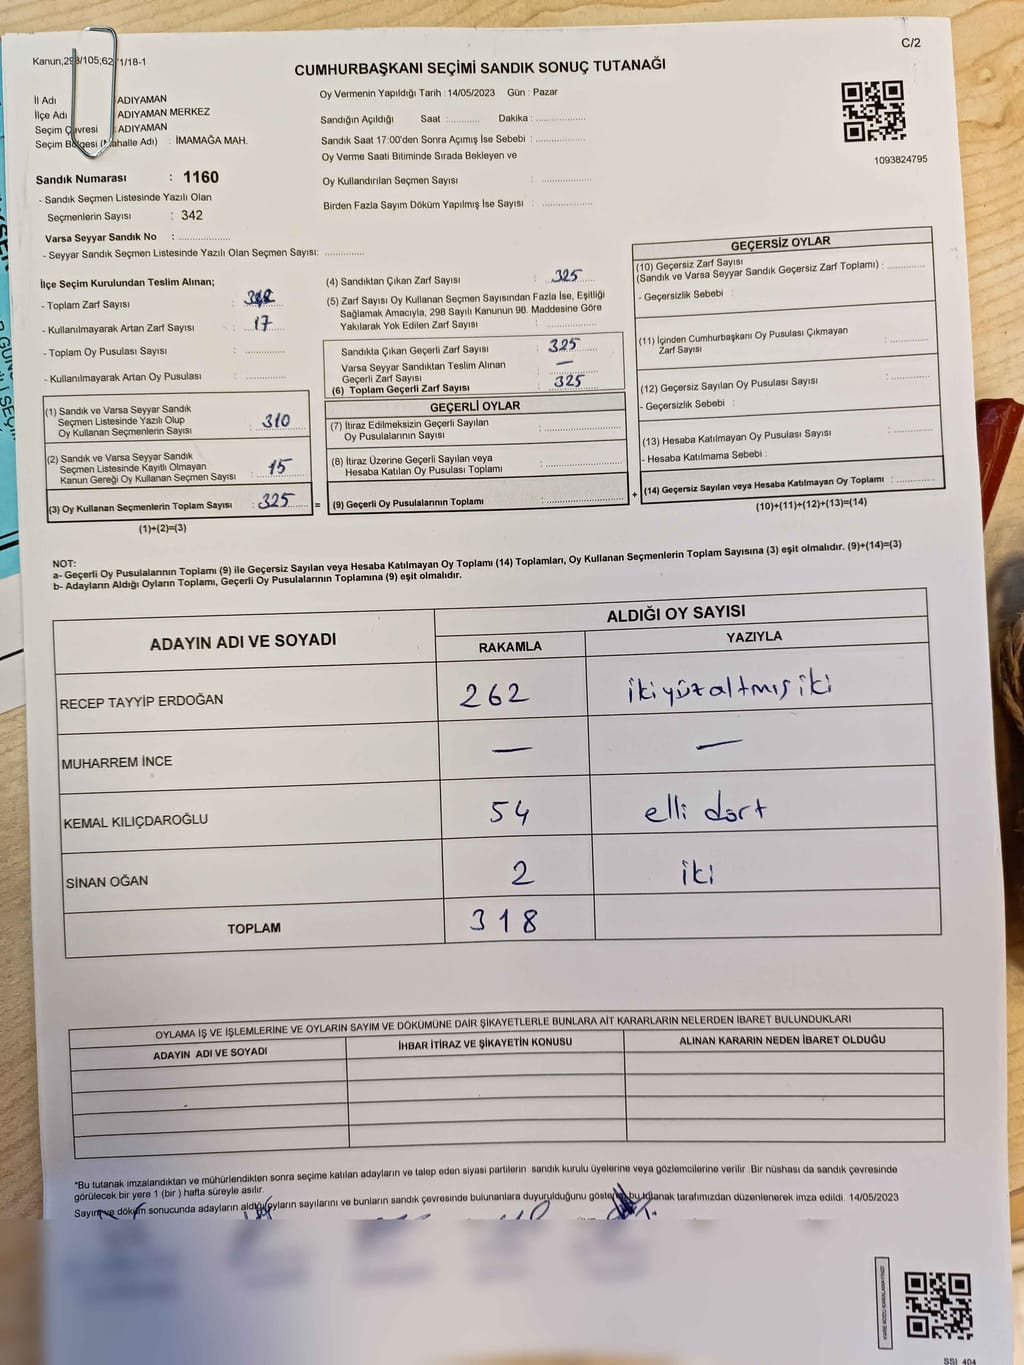 C/2
Kanun;298/105;62/1/18-1
CUMHURBAŞKANI SEÇİMİ SANDIK SONUÇ TUTANAĞI
İl Adı ADIYAMAN
İlçe Adı ADIYAMAN MERKEZ
Seçim Çevresi : ADIYAMAN
Seçim Bölgesi (Mahalle Adı) : İMAMAĞA MAH.
Sandık Numarası : 1160
- Sandık Seçmen Listesinde Yazılı Olan
Seçmenlerin Sayısı : 342
Varsa Seyyar Sandık No : ..................
- Seyyar Sandık Seçmen Listesinde Yazılı Olan Seçmen Sayısı: .............
Oy Vermenin Yapıldığı Tarih : 14/05/2023 Gün : Pazar
Sandığın Açıldığı Saat :........... Dakika : ................
Sandık Saat 17:00'den Sonra Açımış İse Sebebi : ................
Oy Verme Saati Bitiminde Sırada Bekleyen ve
Oy Kullandırılan Seçmen Sayısı : ................
Birden Fazla Sayım Döküm Yapılmış İse Sayısı : ................
1093824795
İlçe Seçim Kurulundan Teslim Alınan;
- Toplam Zarf Sayısı :
- Kullanılmayarak Artan Zarf Sayısı : 17
- Toplam Oy Pusulası Sayısı : .............
- Kullanılmayarak Artan Oy Pusulası : .............
(1) Sandık ve Varsa Seyyar Sandık
Seçmen Listesinde Yazılı Olup
Oy Kullanan Seçmenlerin Sayısı : 310
(2) Sandık ve Varsa Seyyar Sandık
Seçmen Listesinde Kayıtlı Olmayan
Kanun Gereği Oy Kullanan Seçmen Sayısı : 15
(3) Oy Kullanan Seçmenlerin Toplam Sayısı : 325 =
(1)+(2)=(3)
(4) Sandıktan Çıkan Zarf Sayısı : 325
(5) Zarf Sayısı Oy Kullanan Seçmen Sayısından Fazla İse, Eşitliği
Sağlamak Amacıyla, 298 Sayılı Kanunun 98. Maddesine Göre
Yakılarak Yok Edilen Zarf Sayısı : ................
Sandıkta Çıkan Geçerli Zarf Sayısı : 325
Varsa Seyyar Sandıktan Teslim Alınan
Geçerli Zarf Sayısı : —
(6) Toplam Geçerli Zarf Sayısı : 325
GEÇERLİ OYLAR
(7) İtiraz Edilmeksizin Geçerli Sayılan
Oy Pusulalarının Sayısı : ................
(8) İtiraz Üzerine Geçerli Sayılan veya
Hesaba Katılan Oy Pusulası Toplamı : ................
(9) Geçerli Oy Pusulalarının Toplamı : ................ +
GEÇERSİZ OYLAR
(10) Geçersiz Zarf Sayısı
(Sandık ve Varsa Seyyar Sandık Geçersiz Zarf Toplamı) : ............
- Geçersizlik Sebebi :
(11) İçinden Cumhurbaşkanı Oy Pusulası Çıkmayan
Zarf Sayısı : ............
(12) Geçersiz Sayılan Oy Pusulası Sayısı : ............
- Geçersizlik Sebebi :
(13) Hesaba Katılmayan Oy Pusulası Sayısı : ............
- Hesaba Katılmama Sebebi :
(14) Geçersiz Sayılan veya Hesaba Katılmayan Oy Toplamı : ............
(10)+(11)+(12)+(13)=(14)
NOT:
a- Geçerli Oy Pusulalarının Toplamı (9) ile Geçersiz Sayılan veya Hesaba Katılmayan Oy Toplamı (14) Toplamları, Oy Kullanan Seçmenlerin Toplam Sayısına (3) eşit olmalıdır. (9)+(14)=(3)
b- Adayların Aldığı Oyların Toplamı, Geçerli Oy Pusulalarının Toplamına (9) eşit olmalıdır.
ADAYIN ADI VE SOYADI ALDIĞI OY SAYISI
RAKAMLA YAZIYLA
RECEP TAYYİP ERDOĞAN 262 ikiyüzaltmışiki
MUHARREM İNCE — —
KEMAL KILIÇDAROĞLU 54 elli dört
SİNAN OĞAN 2 iki
TOPLAM 318
OYLAMA İŞ VE İŞLEMLERİNE VE OYLARIN SAYIM VE DÖKÜMÜNE DAİR ŞİKAYETLERLE BUNLARA AİT KARARLARIN NELERDEN İBARET BULUNDUKLARI
ADAYIN ADI VE SOYADI İHBAR İTİRAZ VE ŞİKAYETİN KONUSU ALINAN KARARIN NEDEN İBARET OLDUĞU
*Bu tutanak imzalandıktan ve mühürlendikten sonra seçime katılan adayların ve talep eden siyasi partilerin sandık kurulu üyelerine veya gözlemcilerine verilir .Bir nüshası da sandık çevresinde
görülecek bir yere 1 (bir ) hafta süreyle asılır.
Sayım ve döküm sonucunda adayların aldığı oyların sayılarını ve bunların sandık çevresinde bulunanlara duyurulduğunu gösteren bu tutanak tarafımızdan düzenlenerek imza edildi. 14/05/2023
SSI_404